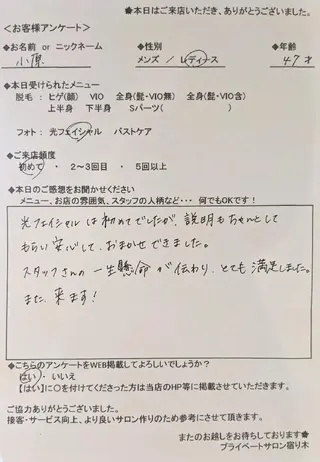 ★本日はご来店いただき、ありがとうございました。
<お客様アンケート>
◆お名前 or ニックネーム ◆性別 ◆年齢
小原 メンズ / レディース 47才
◆本日受けられたメニュー
脱毛 : ヒゲ(顔) VIO 全身(髭・VIO無) 全身(髭・VIO含)
上半身 下半身 Sパーツ( )
フォト : 光フェイシャル バストケア
◆ご来店頻度
初めて ・ 2～3回目 ・ 5回以上
◆本日のご感想をお聞かせください
メニュー、お店の雰囲気、スタッフの人柄など・・・ 何でもOKです!
光フェイシャルは初めてでしたが、説明もちゃんとして
もらい安心して、おまかせできました。
スタッフさんの一生懸命が伝わり、とても満足しました。
また、来ます!
◆こちらのアンケートをWEB掲載してよろしいでしょうか?
はい ・ いいえ
【はい】に○を付けてくださった方は当店のHP等に掲載させていただきます。
ご協力ありがとうございました。
接客・サービス向上、より良いサロン作りのため参考にさせて頂きます。
またのお越しをお待ちしております★
プライベートサロン宿り木